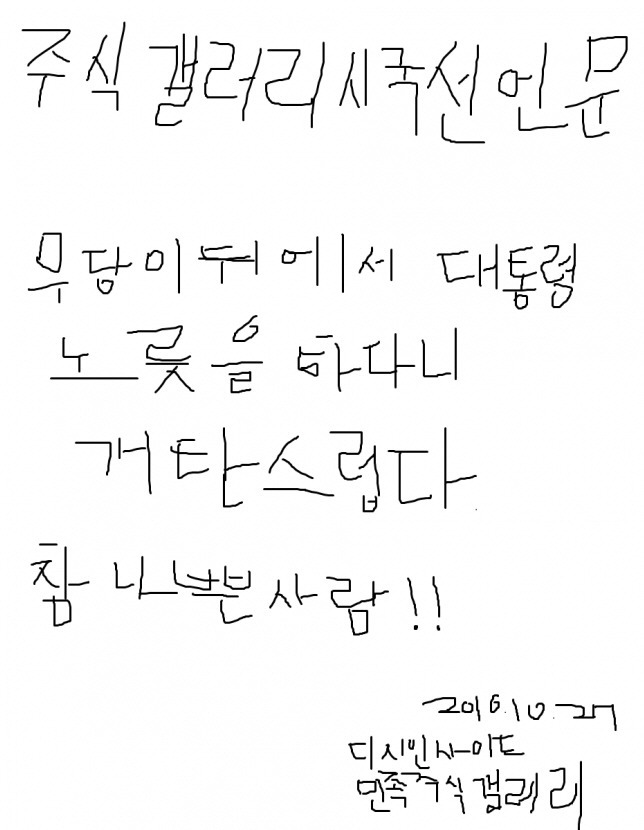 주식갤러리시국선언문
무당이뒤에서 대통령
노릇을 하다니
개탄스럽다
참 나쁜사람!!
2016.10.27
디시인사이드
민족주식갤러리